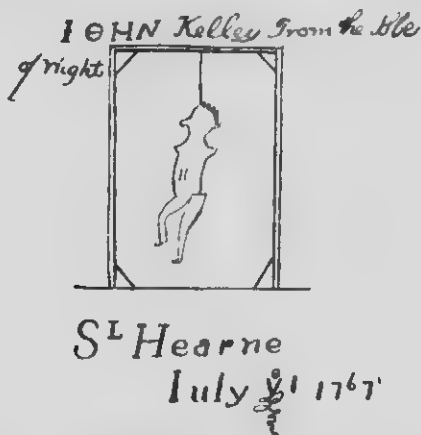 IOHN Kelley From the Isle
of wight
Sᴸ Hearne
Iuly yᵉ 1 1767